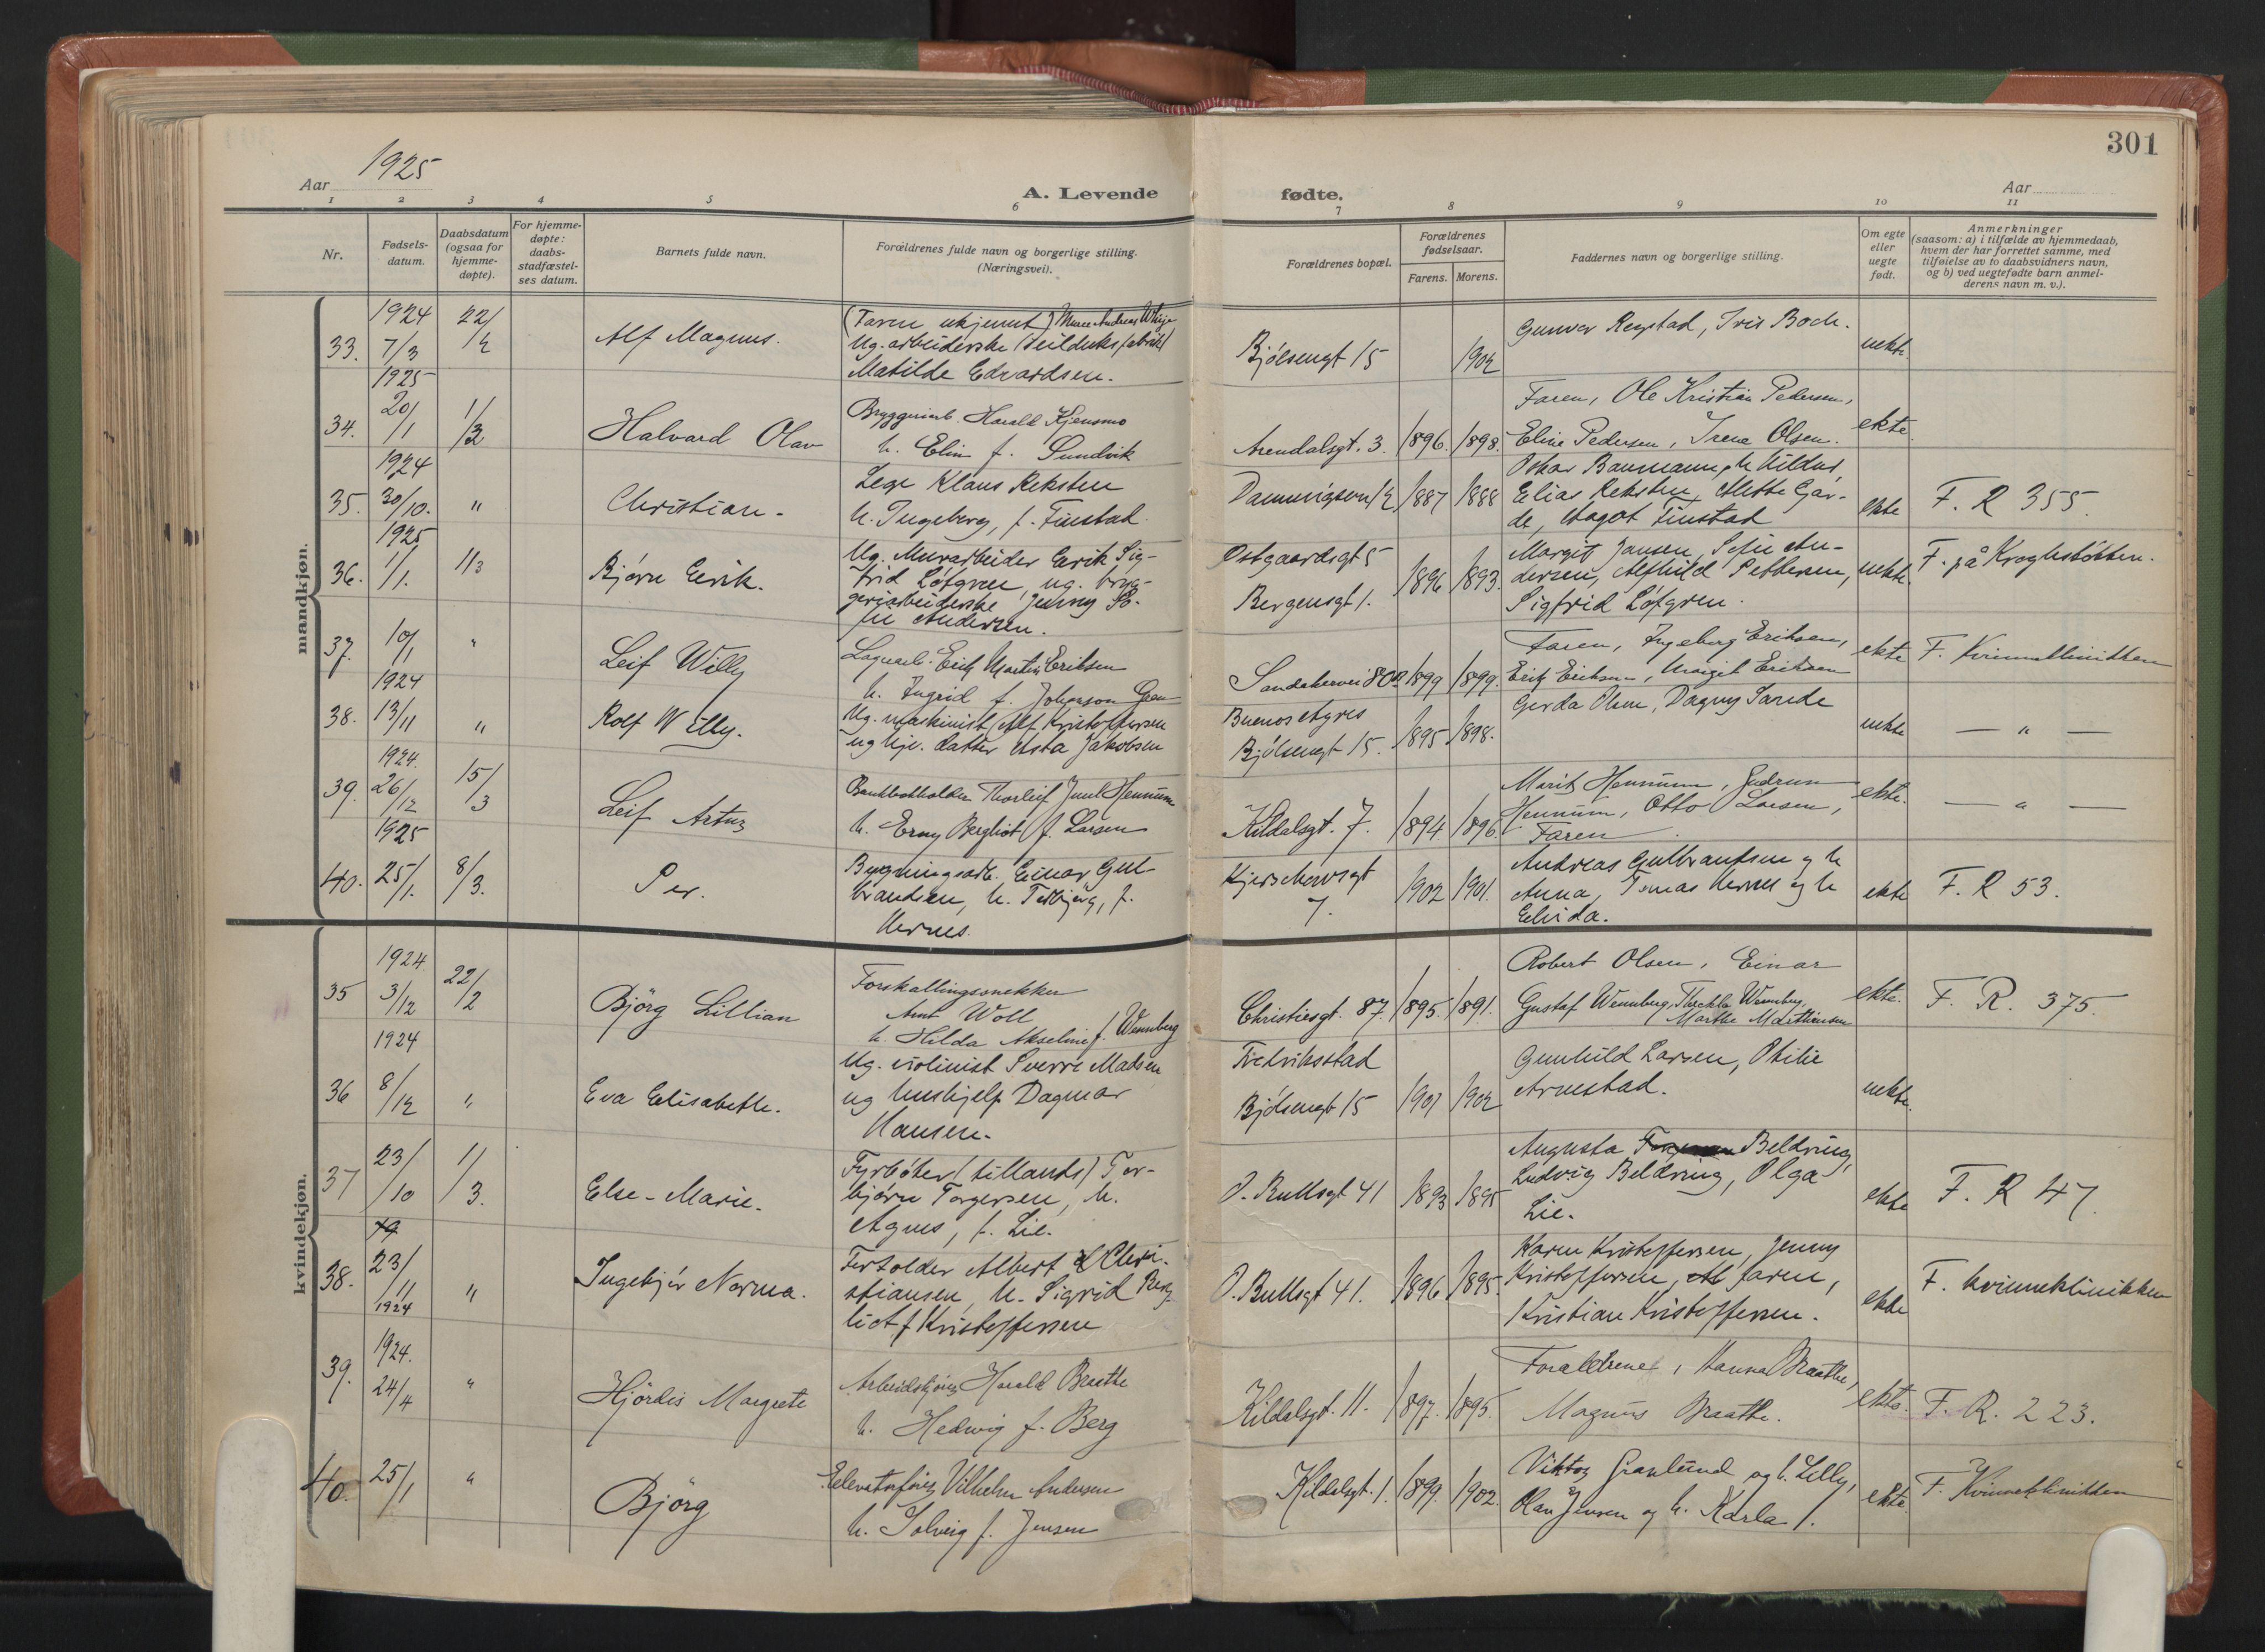 301
1925
Aar
A. Levende
fødte.
Aar
1 2 3 4 5 6 7 8 9 10 11
Nr.
Fødsels-
datum.
Daabsdatum
(ogsaa for
hjemme-
døpte).
For hjemme-
døpte:
daabs-
stadfæstel-
ses datum.
Barnets fulde navn.
Forældrenes fulde navn og borgerlige stilling.
(Næringsvei).
Forældrenes bopæl.
Forældrenes
fødselsaar.
Farens. Morens.
Faddernes navn og borgerlige stilling.
Om egte
eller
uegte
født.
Anmerkninger
(saasom: a) i tilfælde av hjemmedaab,
hvem der har forrettet samme, med
tilføielse av to daabsvidners navn,
og b) ved uegtefødte barn anmel-
derens navn m. v.).
mandkjøn.
33.
1924
7/3
22/2
Alf Magnus.
(Faren ukjennt)
Ug. arbeiderske (Seilduksfabrik)
Matilde Edvardsen.
Bjølsengt 15
1902
Gunvor Regstad, Iris Bock.
uekte.
34.
1925
20/1
1/3
Halvard Olav
Bryggeriarb. Harald Kjensmo
h. Elin f. Sundvik
Arendalsgt. 3.
1896. 1898.
Faren, Ole Kristian Pedersen,
Eline Pedersen, Irene Olsen.
ekte.
35.
1924
30/10.
"
Christian.
Lege Klaus Reksten
h. Ingeborg, f. Finstad.
1887 1888
Oskar Baumann, h Hildur
Elias Reksten, Mette Går-
de, Dagot Finstad
ekte
F. R 355.
36.
1925
1/1.
1/3
Bjørn Eirik.
Ug. Murarbeider Eirik Sig-
frid Løfgren, ug. bryg-
geriarbeiderske Jenny So-
fie Andersen.
Østgaardsgt 5
Bergensgt 1.
1896 1893.
Margit Jansen, Sofie An-
dersen, Alfhild Pettersen,
Sigfrid Løfgren.
uekte.
F. på Kroghstøtten.
37.
10/1
"
Leif Willy
Lagerarb. Erik Martin Eriksen
h. Ingrid f. Johansson Gran
Sandakervei 80
1899 1899.
Faren, Ingeborg Eriksen,
Erik Eriksen, Margit Eriksen
ekte
F. Kvinneklinikken
38.
1924
13/11
"
Rolf Willy.
Ug. maskinist Alf Kristoffersen
ug hje. datter Asta Jakobsen
Buenos Ayres
Bjølsengt 15.
1895 1898.
Gerda Olsen, Dagny Sande
uekte
— " —
39.
1924.
26/12
15/3
Leif Artur
Bankbokholder Thorleif Juul Hennum
h. Erny Bergliot f. Larsen
Kildalsgt. 7.
1894 1896.
Marit Hennum, Gudrun
Hennum, Otto Larsen,
Faren
ekte.
— " —
40.
1925
25/1.
8/3.
Per.
Bygningsarb. Einar Gul-
brandsen, h. Torbjørg, f.
Hernes.
Kjerschowsgt
7.
1902 1901.
Andreas Gulbrandsen og h
Anna, Tomas Hernes og h
Elvida.
ekte
F. R 53.
kvindekjøn.
35
1924.
3/12
22/2
Bjørg Lillian
Forskallingssnekker
Arnt Woll
h. Hilda Akseline f. Wennberg
Christiesgt. 87.
1895. 1891.
Robert Olsen, Einar
Gustaf Wennberg, Theckla Wennberg,
Marthe Mathiensen
ekte.
F. R. 375.
36
1924
8/12
"
Eva Elisabeth.
Ug. violinist Sverre Madsen
ug hushjelp Dagmar
Hansen.
Fredriksstad
Bjølsengt 15
1901 1902
Gunhild Larsen, Otilie
Arnestad.
uekte.
37
23/10
1/3.
Else-Marie.
Fyrbøter (tillands) Tor-
bjørn Torgersen, h.
Agnes, f. Lie.
O. Bullsgt 41
1893 1895
Augusta Beldring,
Ludvig Beldring, Olga
Lie.
ekte
F. R 47
38.
23/11
1924
"
Ingebjør Norma.
Forgolder Albert Chri-
stiansen, h. Sigrid Berg-
liot f Kristoffersen
O. Bullsgt 41.
1896 1895.
Karen Kristoffersen, Jenny
Kristoffersen, faren,
Kristian Kristoffersen.
ekte
F. kvinneklinikken
39.
1924.
24/4
"
Hjördis Margrete
Arbeidskjører Harald Braathe
h. Hedwig f. Berg
Kildalsgt. 11.
1897. 1895.
Foreldrene, Hanna Braathe,
Magnus Braathe.
ekte.
F. R. 223.
40.
25/1
"
Björg
Elevatorfører Vilhelm Andersen
h. Solveig f. Jensen
Kildalsgt. 1.
1899. 1902.
Viktor Granlund og h. Lilly,
Olav Jensen og h. Karla.
ekte.
F. Kvinneklinikken